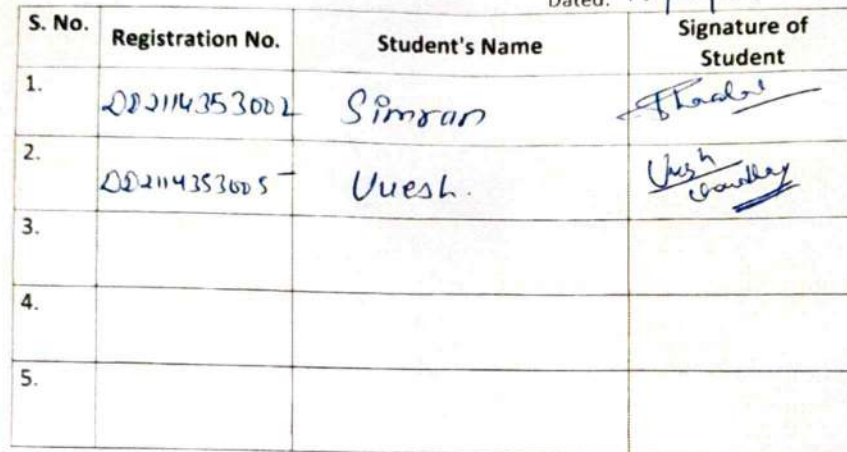 Dated:
S. No. Registration No. Student's Name Signature of
Student
1. DD2114353002 Simran
2. DD2114353005 Vuesh.
3.
4.
5.